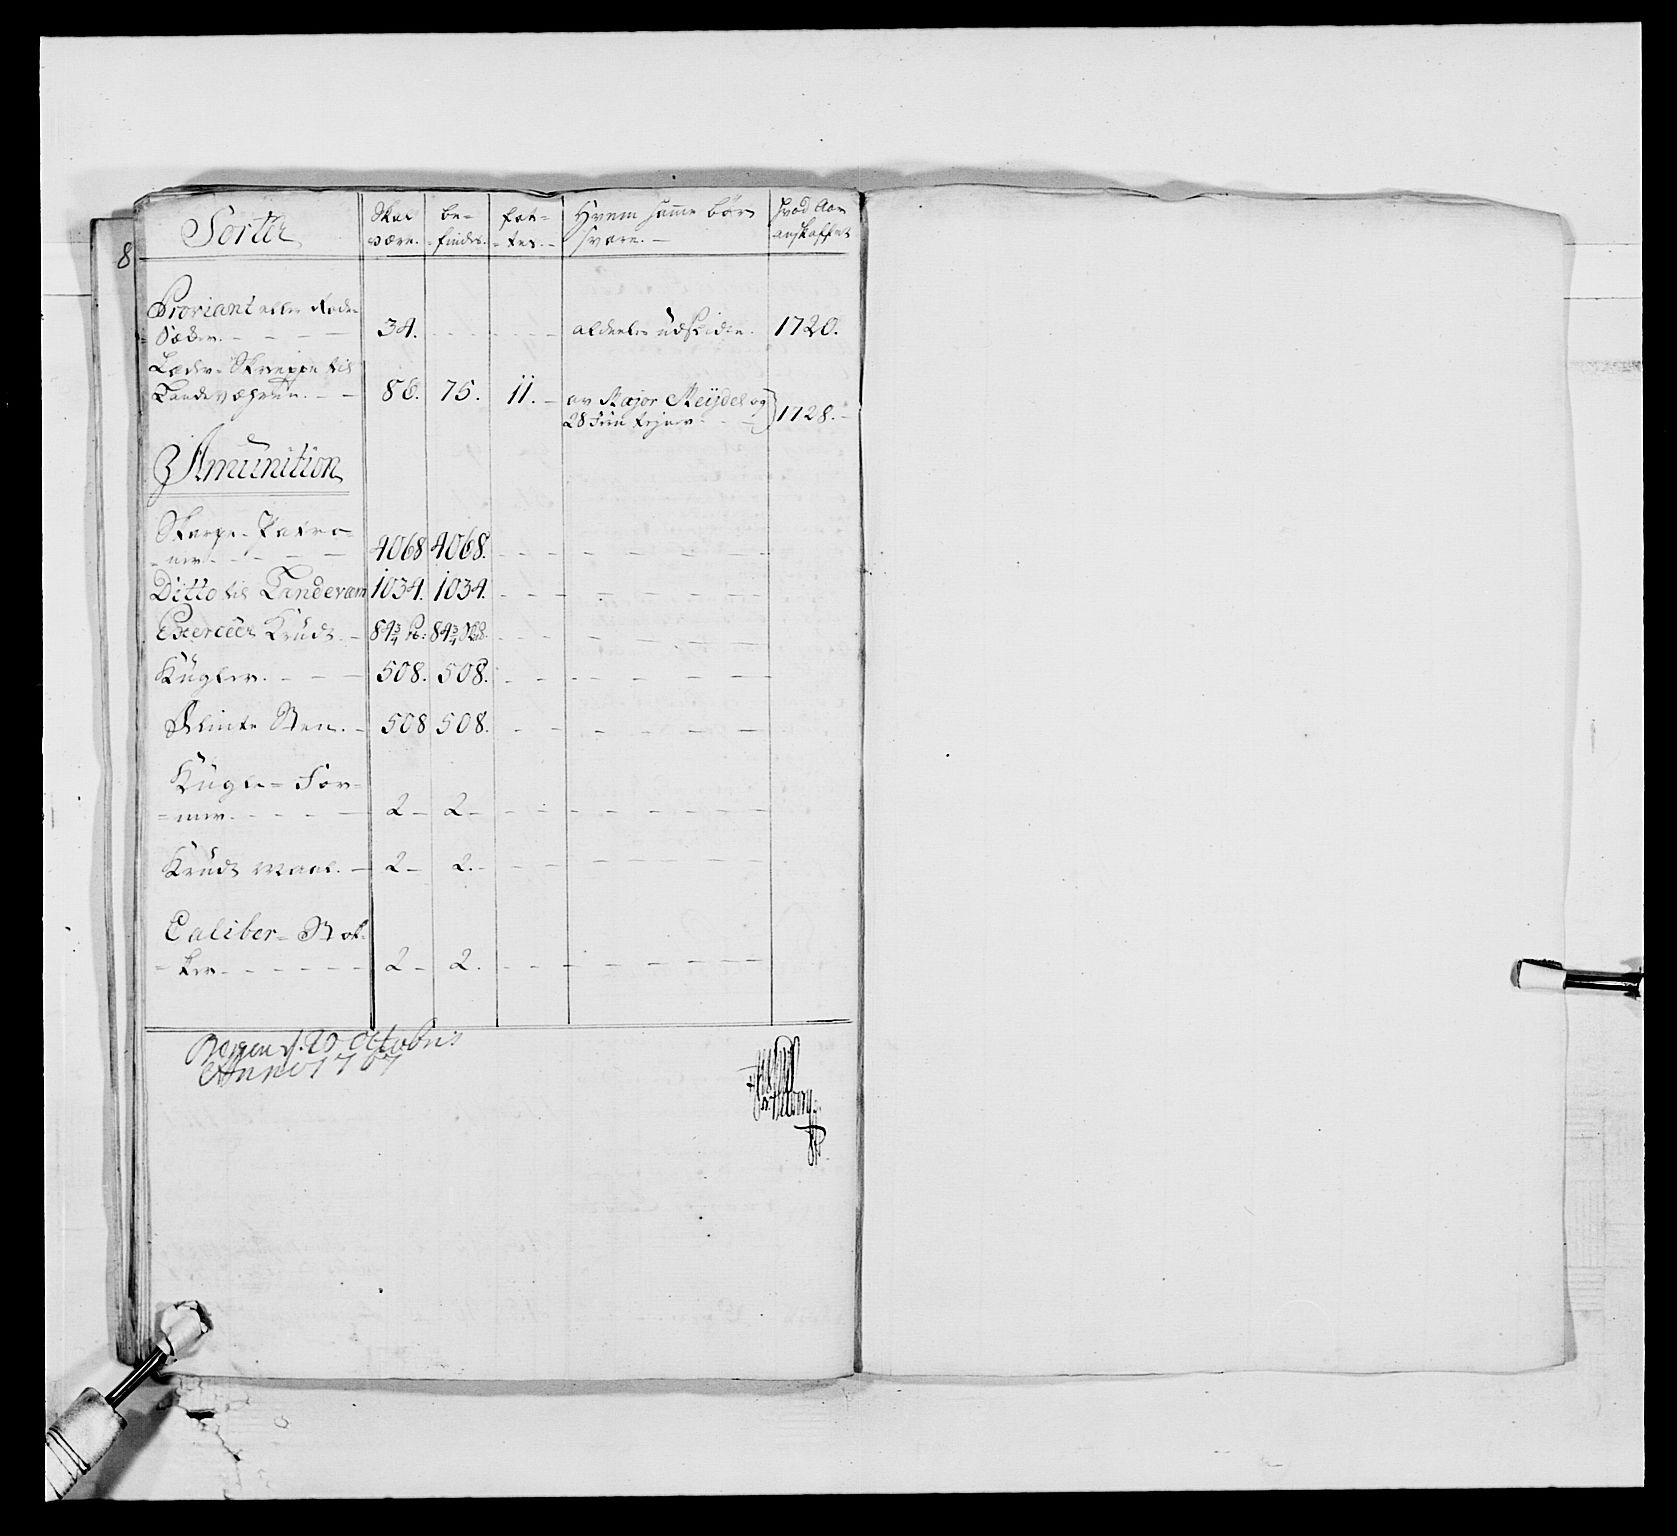 8
Sorter
Skal være.
be- finder.
fat- tes.
Hvem samme bør svare.
hvad Aar anskaffet
Proviant eller Rode-
Sæder. 34. alderles udslidte. 1720.
Læder-Skreppe til
Landeværnet. 86. 75. 11. av Major Meÿdel og
28 1728.
Amunition
Skarpe-Patro-
ner 4068 4068.
Ditto til Landeværn 1034. 1034.
Exerceer Krudt. 84¾ 84¾
Kugler. 508. 508.
Flinte Steen. 508 508.
Kugle-For-
mer. 2 2
Krudt Maal. 2 2.
Caliber-Stok-
ker 2 2.
Bergen d. 20 Octobris
Anno 1767